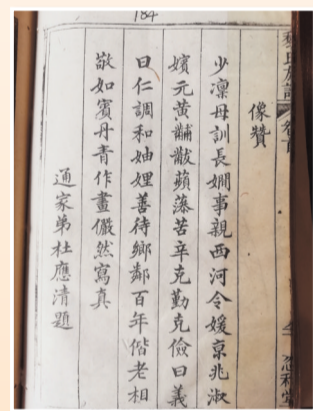 184
像贊
少凜母訓長嫻事親西河令媛京兆淑
嬪元黃黼黻蘋藻苦辛克勤克儉曰義
曰仁調和妯娌善待鄉鄰百年偕老相
敬如賓丹青作畫儼然寫真
通家弟杜應清題
氏族譜
卷首